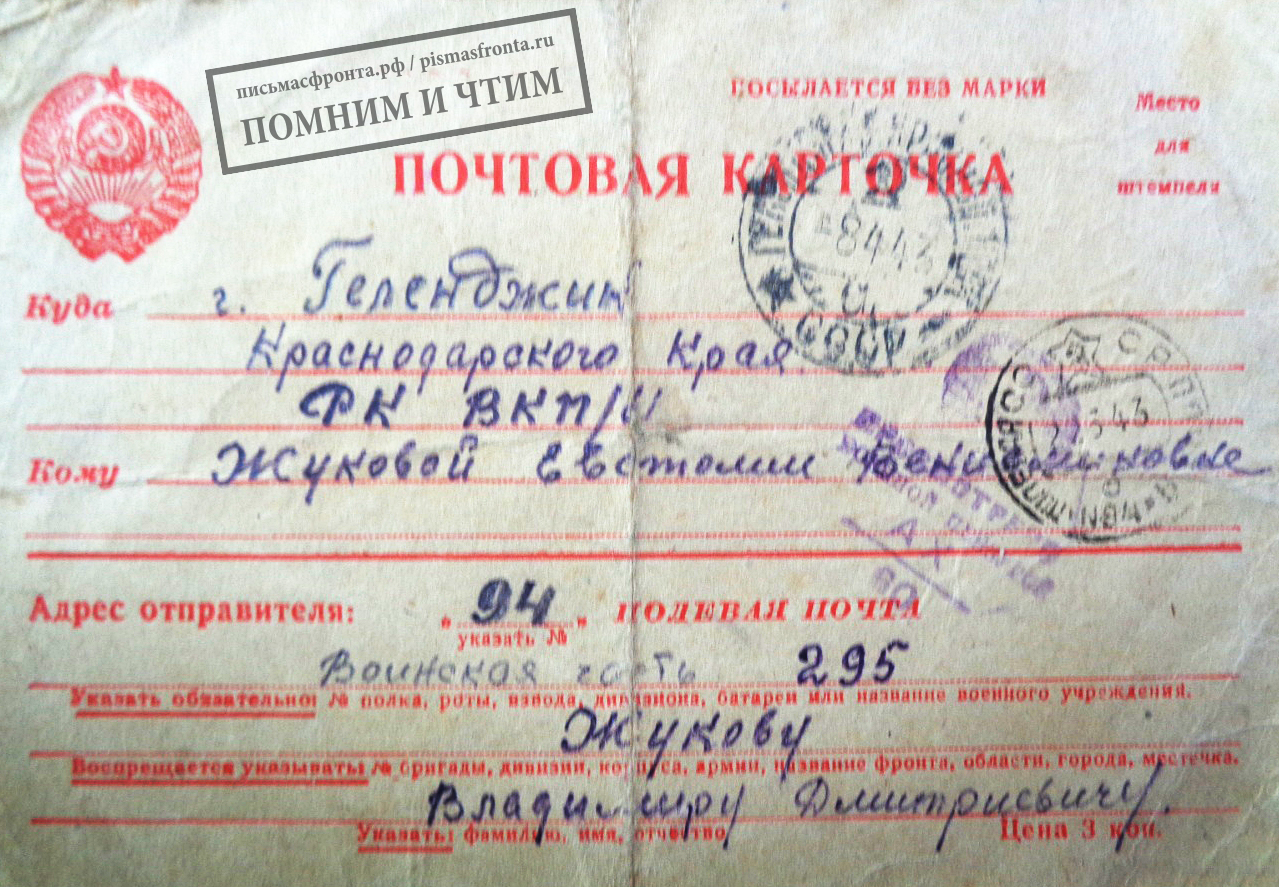 письмасфронта.рф / pismasfronta.ru
ПОМНИМ И ЧТИМ
ПОСЫЛАЕТСЯ БЕЗ МАРКИ
Место
для
штемпеля
ПОЧТОВАЯ КАРТОЧКА
8 4 43
СССР
Куда г. Геленджик
Краснодарского Края
РК ВКП/
Кому Жуковой Евстолии
43
Адрес отправителя: „94" ПОЛЕВАЯ ПОЧТА
указать №
Воинская часть 295
Указать обязательно: № полка, роты, взвода, дивизиона, батареи или название военного учреждения.
Жукову
Воспрещается указывать: № бригады, дивизии, корпуса, армии, название фронта, области, города, местечка.
Владимиру Дмитриевичу.
Указать: фамилию, имя, отчество
Цена 3 коп.